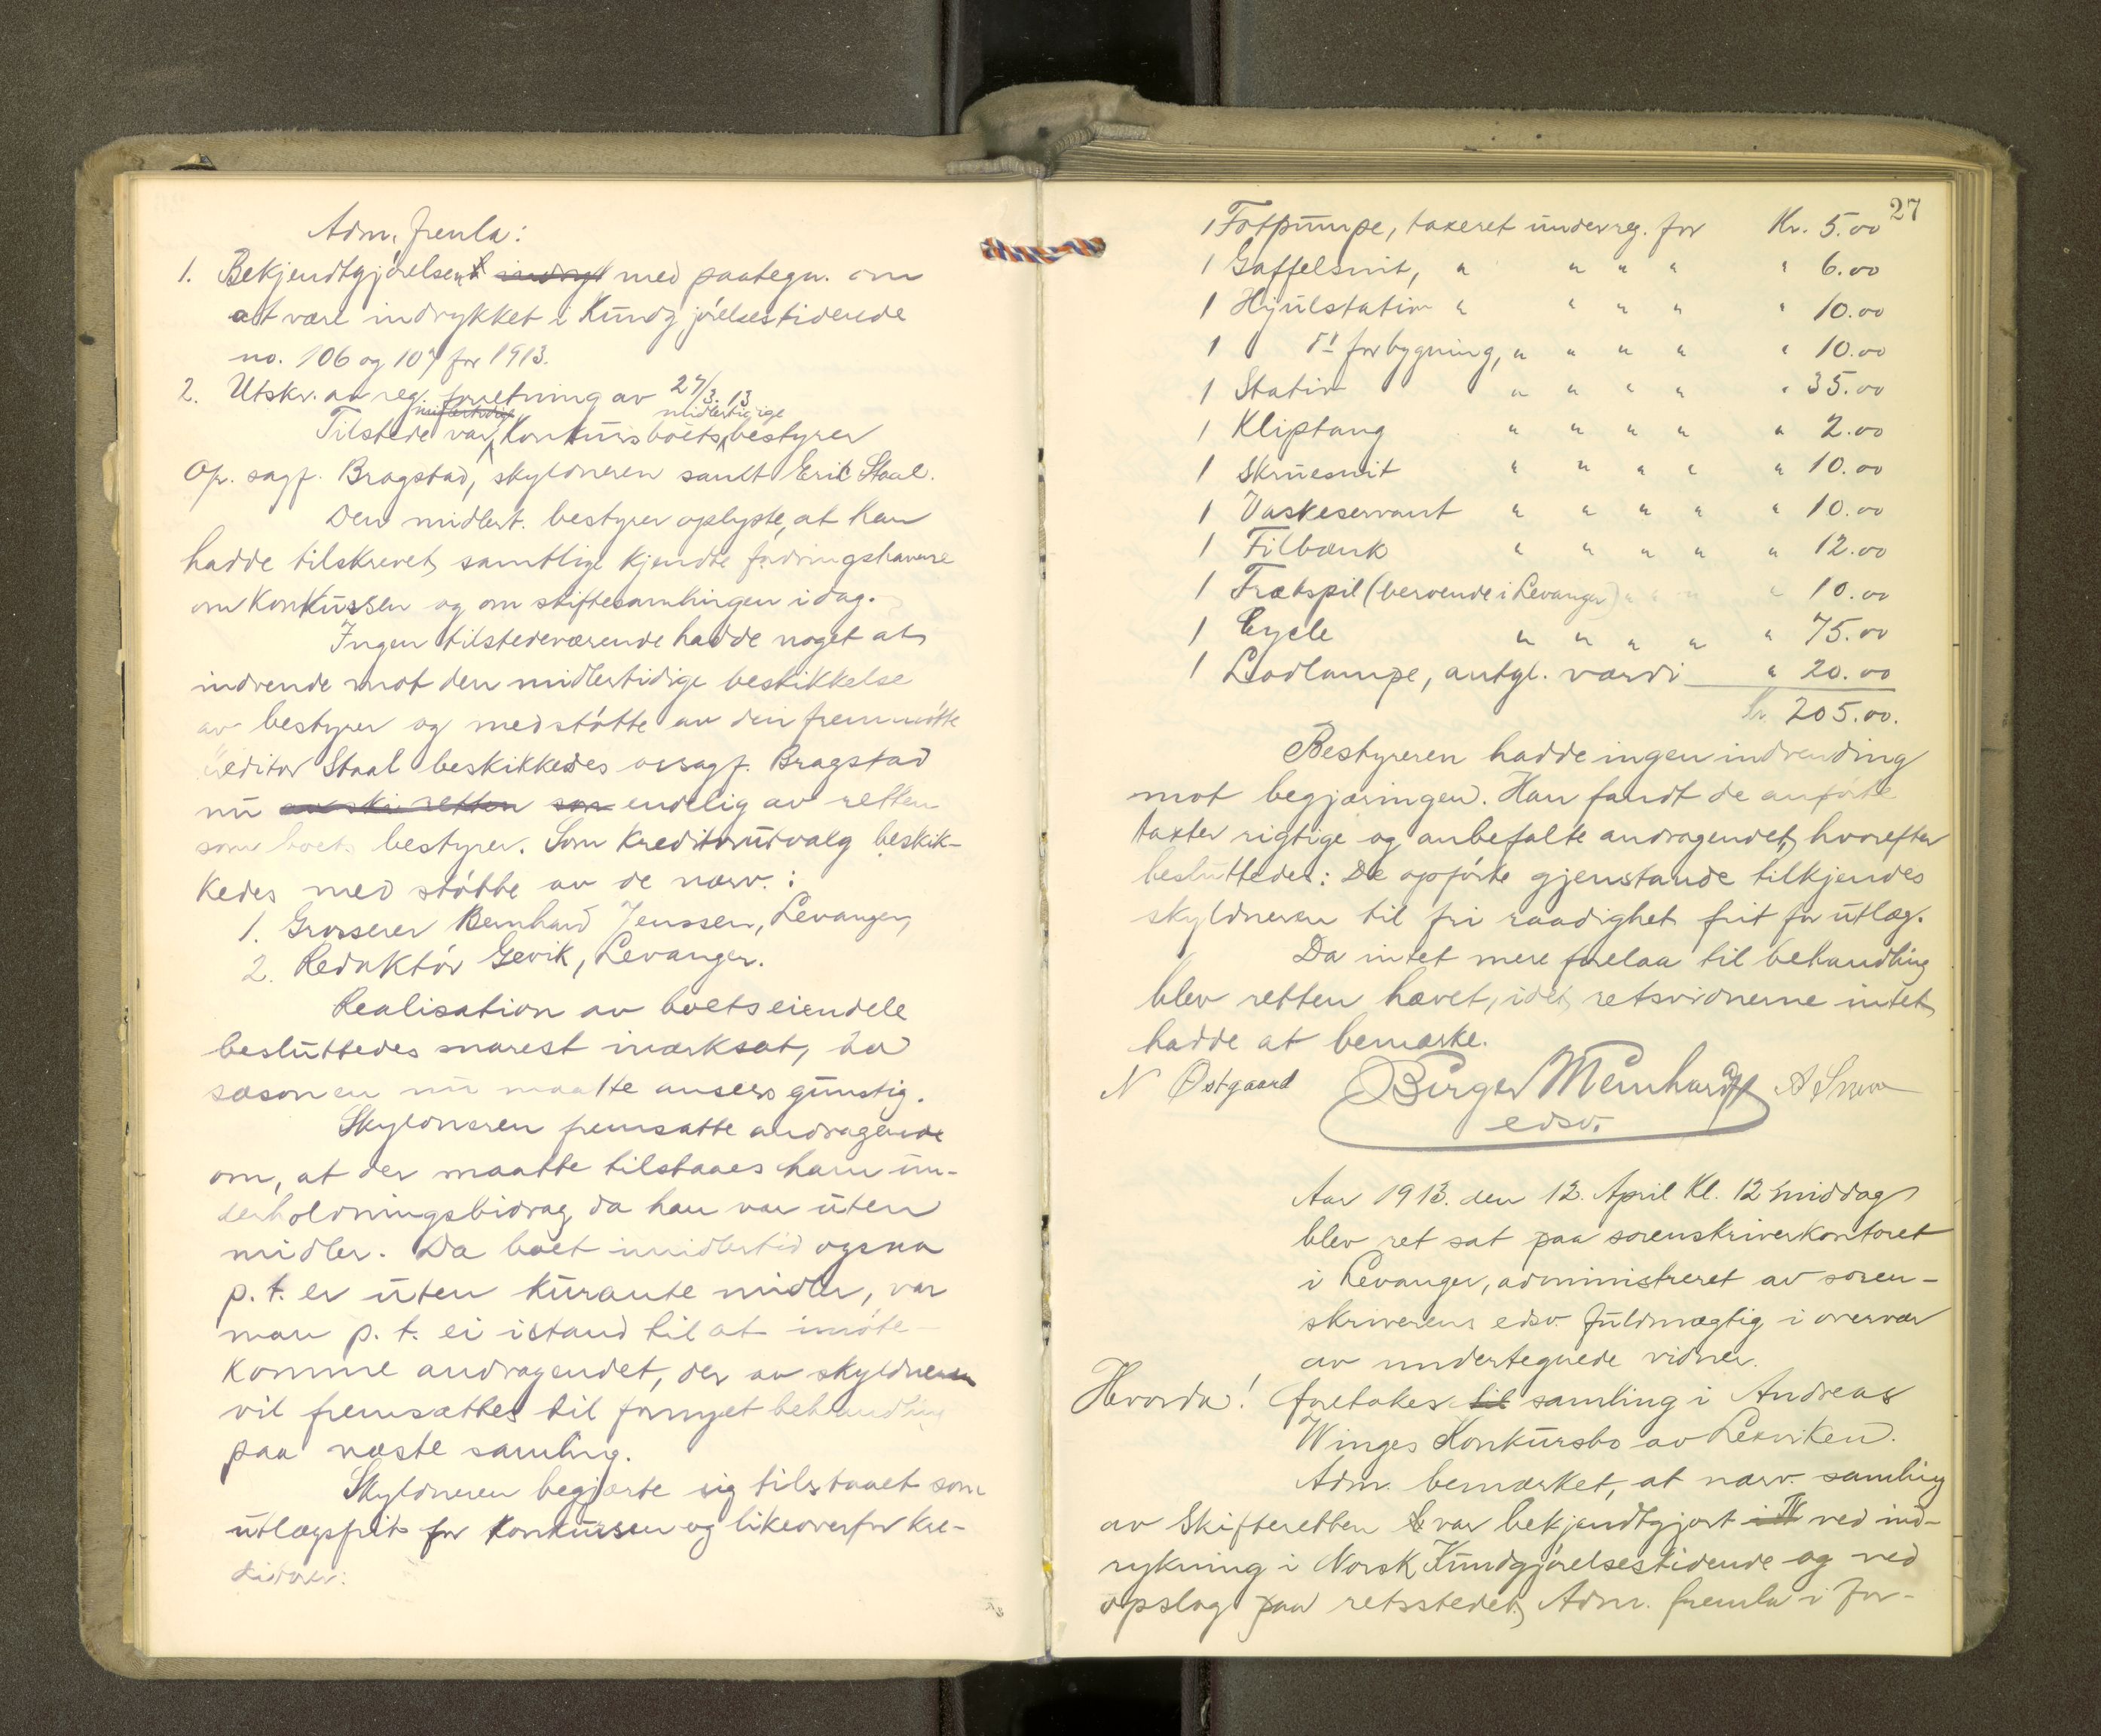 Adm. fremla:
1. Bekjendtgjørelsen med paategn. om
at være indrykket i Kundgjørelsestidende
no. 106 og 107 for 1913.
2. Utskr. av reg. forretning av 27/3. 13
midlertidige midlertidige
Tilstede var Konkursboets bestyrer
Or. sagf. Bragstad, skyldneren samt Erik Staal.
Den midlert. bestyrer oplyste, at han
hadde tilskrevet samtlige kjendte fordringshavere
om Konkursen og om skiftesamlingen idag.
Ingen tilstedeværende hadde noget at
indvende mot den midlertidige beskikkelse
av bestyrer og med støtte av den fremmøtte
kreditor Staal beskikkedes orsagf. Bragstad
nu endelig av retten
som boets bestyrer. Som Kreditorutvalg beskik-
kedes med støtte av de nærv.:
1. Grosserer Bernhard Jenssen, Levanger,
2. Redaktør Gevik, Levanger.
Realisation av boets eiendele
besluttedes snarest iverksat, da
sæsonen nu maatte ansees gunstig.
Skyldneren fremsatte andragende
om, at der maatte tilstaaes ham un-
derholdningsbidrag da han var uten
midler. Da boet imidlertid ogsaa
p. t. er uten kurante midler, var
man p. t. ei istand til at imøte-
komme andragendet, der av skyldneren
vil fremsættes til fornyet behandling
paa næste samling.
Skyldneren begjærte sig tilstaaet som
utlægsfrit for Konkursen og likeoverfor kre-
ditorer:
27
1 Fotpumpe, taxeret under reg. for Kr. 5.00
1 Gaffelsnit, " " " " " 6.00
1 Hjulstativ " " " " " 10.00
1 do forbygning, " " " " " 10.00
1 Stativ " " " " " 35.00
1 Kliptang " " " " " 2.00
1 Skruesnit " " " " " 10.00
1 Vaskeservant " " " " " 10.00
1 Filbænk " " " " " 12.00
1 Trækspil (beroende i Levanger) " " " " 10.00
1 Cycle " " " " " 75.00
1 Lodlampe, antgl. værdi " 20.00
Kr. 205.00.
Bestyreren hadde ingen indvending
mot begjæringen. Han fandt de anførte
taxter rigtige og anbefalte andragendet, hvorefter
besluttedes: De opførte gjenstande tilkjendes
skyldneren til fri raadighet frit for utlæg.
Da intet mere forelaa til behandling
blev retten hævet, idet retsvidnerne intet
hadde at bemærke.
N Østgaard Birger Meinhardt
edsv.
Aar 1913. den 12. April Kl. 12 middag
blev ret sat paa sorenskriverkontoret
i Levanger, administreret av soren-
skriverens edsv. fuldmægtig i overvær
av undertegnede vidner.
Hvorda! foretokes til samling i Andreas
Winges Konkursbo av Leksviken.
Adm. bemærket, at nærv. samling
av Skifteretten var bekjendtgjort ved ind-
rykning i Norsk Kundgjørelsestidende og ved
opslag paa retsstedet, Adm. fremla i for-